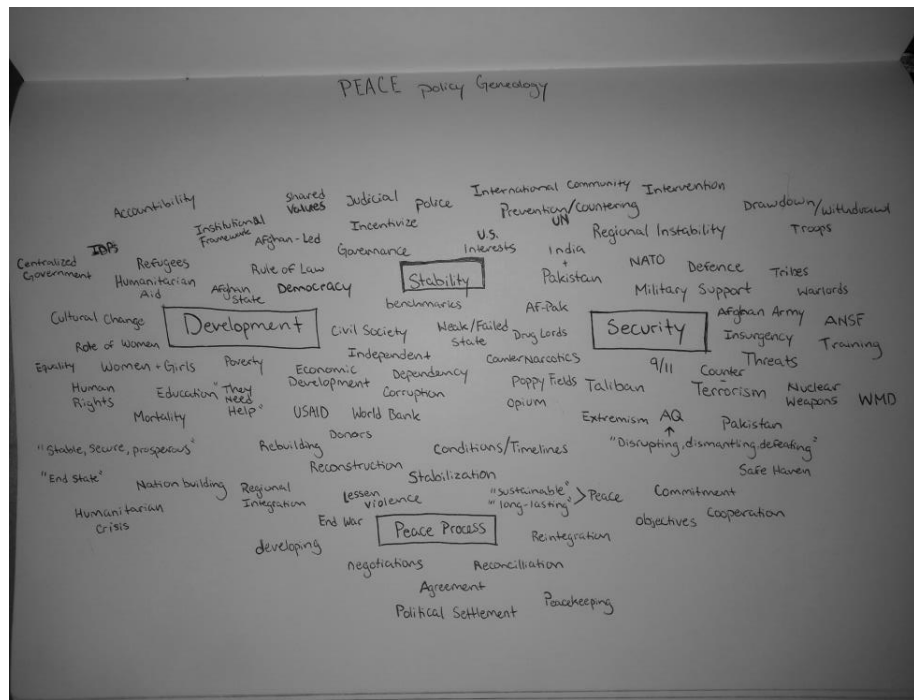 PEACE policy Genealogy
Accountibility
Shared Values
Judicial
Police
International Community
Intervention
Prevention/Countering
UN
Drawdown/Withdrawl
Troops
Institutional Framework
Afghan-Led
Incentivize
U.S. Interests
Regional Instability
IDPs
Centralized Government
Refugees
Governance
India + Pakistan
NATO
Defence
Tribes
Humanitarian Aid
Rule of Law
Afghan State
Democracy
Stability
Military Support
Warlords
benchmarks
AF-Pak
Cultural Change
Development
Civil Society
Weak/Failed State
Drug Lords
Security
Afghan Army
ANSF
Insurgency
Training
Role of Women
Independent
Counter Narcotics
9/11
Threats
Equality
Women + Girls
Poverty
Economic Development
Dependency
Counter-Terrorism
Human Rights
Education
"They Need Help"
Corruption
Poppy Fields
Opium
Taliban
Nuclear Weapons
WMD
Mortality
USAID
World Bank
Extremism
AQ
Pakistan
Donors
"Stable, secure, prosperous"
Rebuilding
Conditions/Timelines
"Disrupting, dismantling, defeating"
Reconstruction
Stabilization
Safe Haven
"End State"
Nation building
Regional Integration
Lessen violence
"sustainable"
"long-lasting" > Peace
Commitment
Humanitarian Crisis
End War
Peace Process
Reintegration
objectives
Cooperation
developing
negotiations
Reconcilliation
Agreement
Political Settlement
Peacekeeping